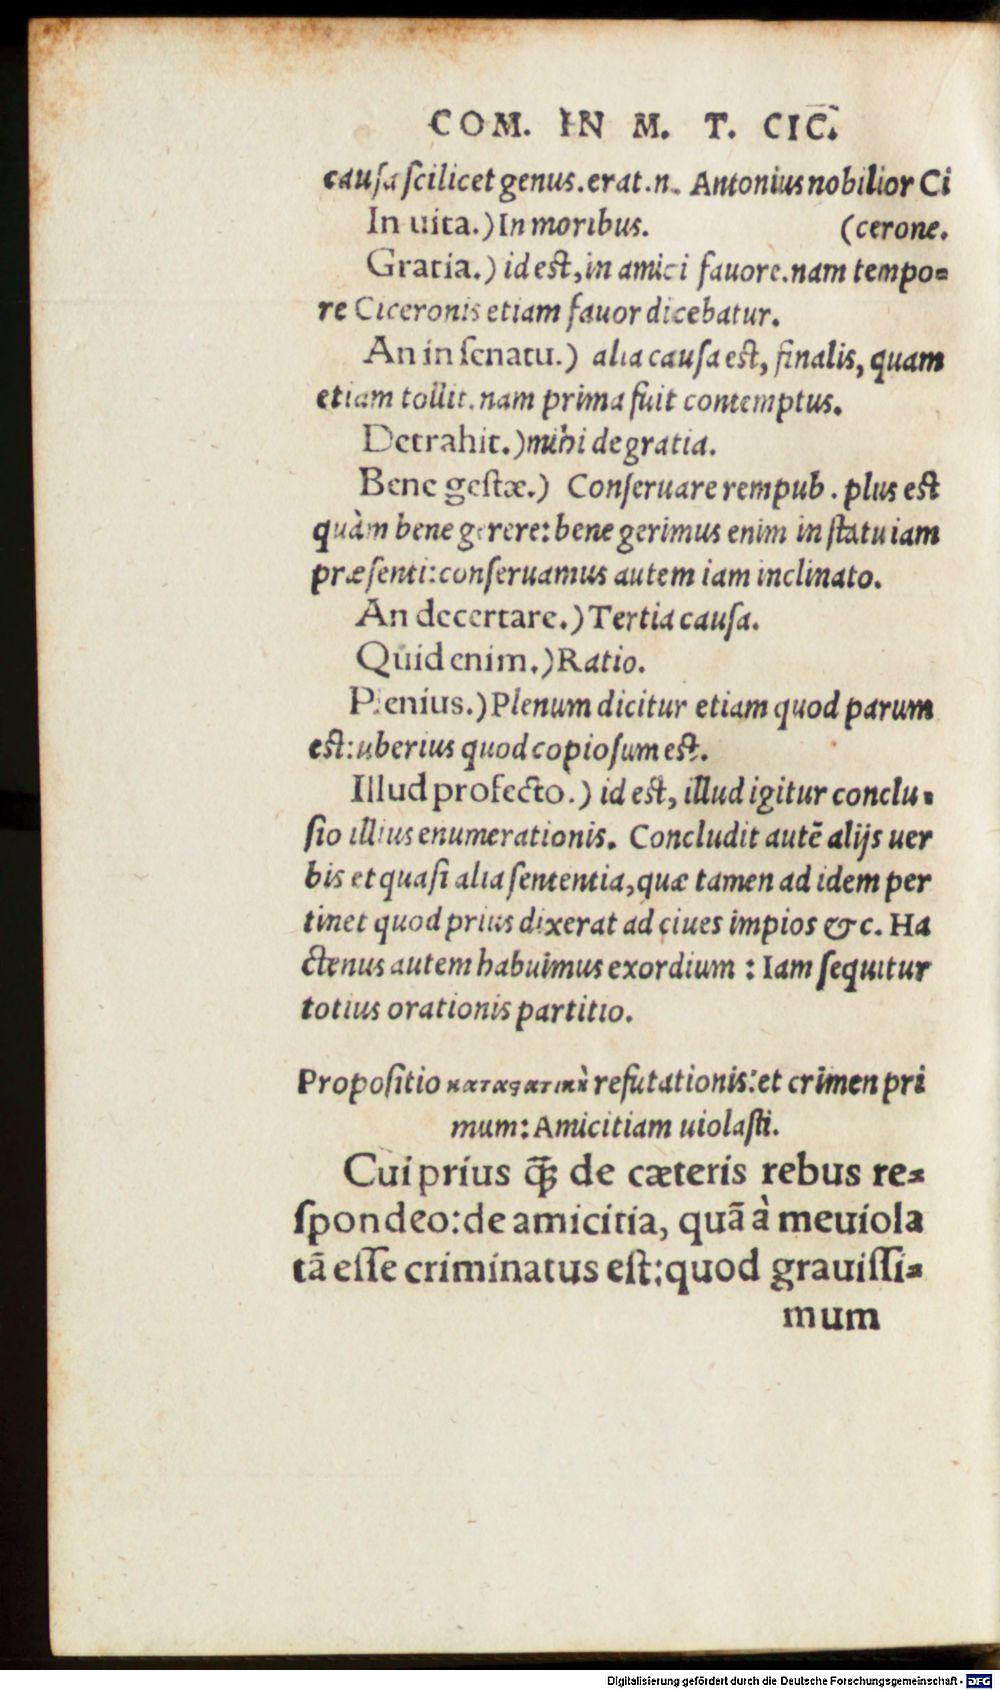 COM. IN M. T. CIC̄.
cauſa ſcilicet genus. erat .n. Antonius nobilior Ci
In uita.) In moribus. (cerone.
Gratia.) id eſt, in amici fauore. nam tempo=
re Ciceronis etiam fauor dicebatur.
An in ſenatu.) alia cauſa eſt, finalis, quam
etiam tollit. nam prima fuit contemptus.
Detrahit.) mihi de gratia.
Bene geſtæ.) Conſeruare rempub. plus eſt
quàm bene gerere: bene gerimus enim in ſtatu iam
præſenti: conſeruamus autem iam inclinato.
An decertare.) Tertia cauſa.
Quid enim.) Ratio.
Plenius.) Plenum dicitur etiam quod parum
eſt: uberius quod copioſum eſt.
Illud profecto.) id eſt, illud igitur conclu-
ſio illius enumerationis. Concludit autē alijs uer
bis et quaſi alia ſententia, quæ tamen ad idem per
tinet quod prius dixerat ad ciues impios &c. Ha
ctenus autem habuimus exordium : Iam ſequitur
totius orationis partitio.
Propoſitio refutationis: et crimen pri
mum: Amicitiam uiolaſti.
Cui prius q̄ꝫ de cæteris rebus re=
ſpondeo: de amicitia, quā à me uiola
tā eſſe criminatus eſt: quod grauiſſi=
mum
Digitalisierung gefördert durch die Deutsche Forschungsgemeinschaft - DFG